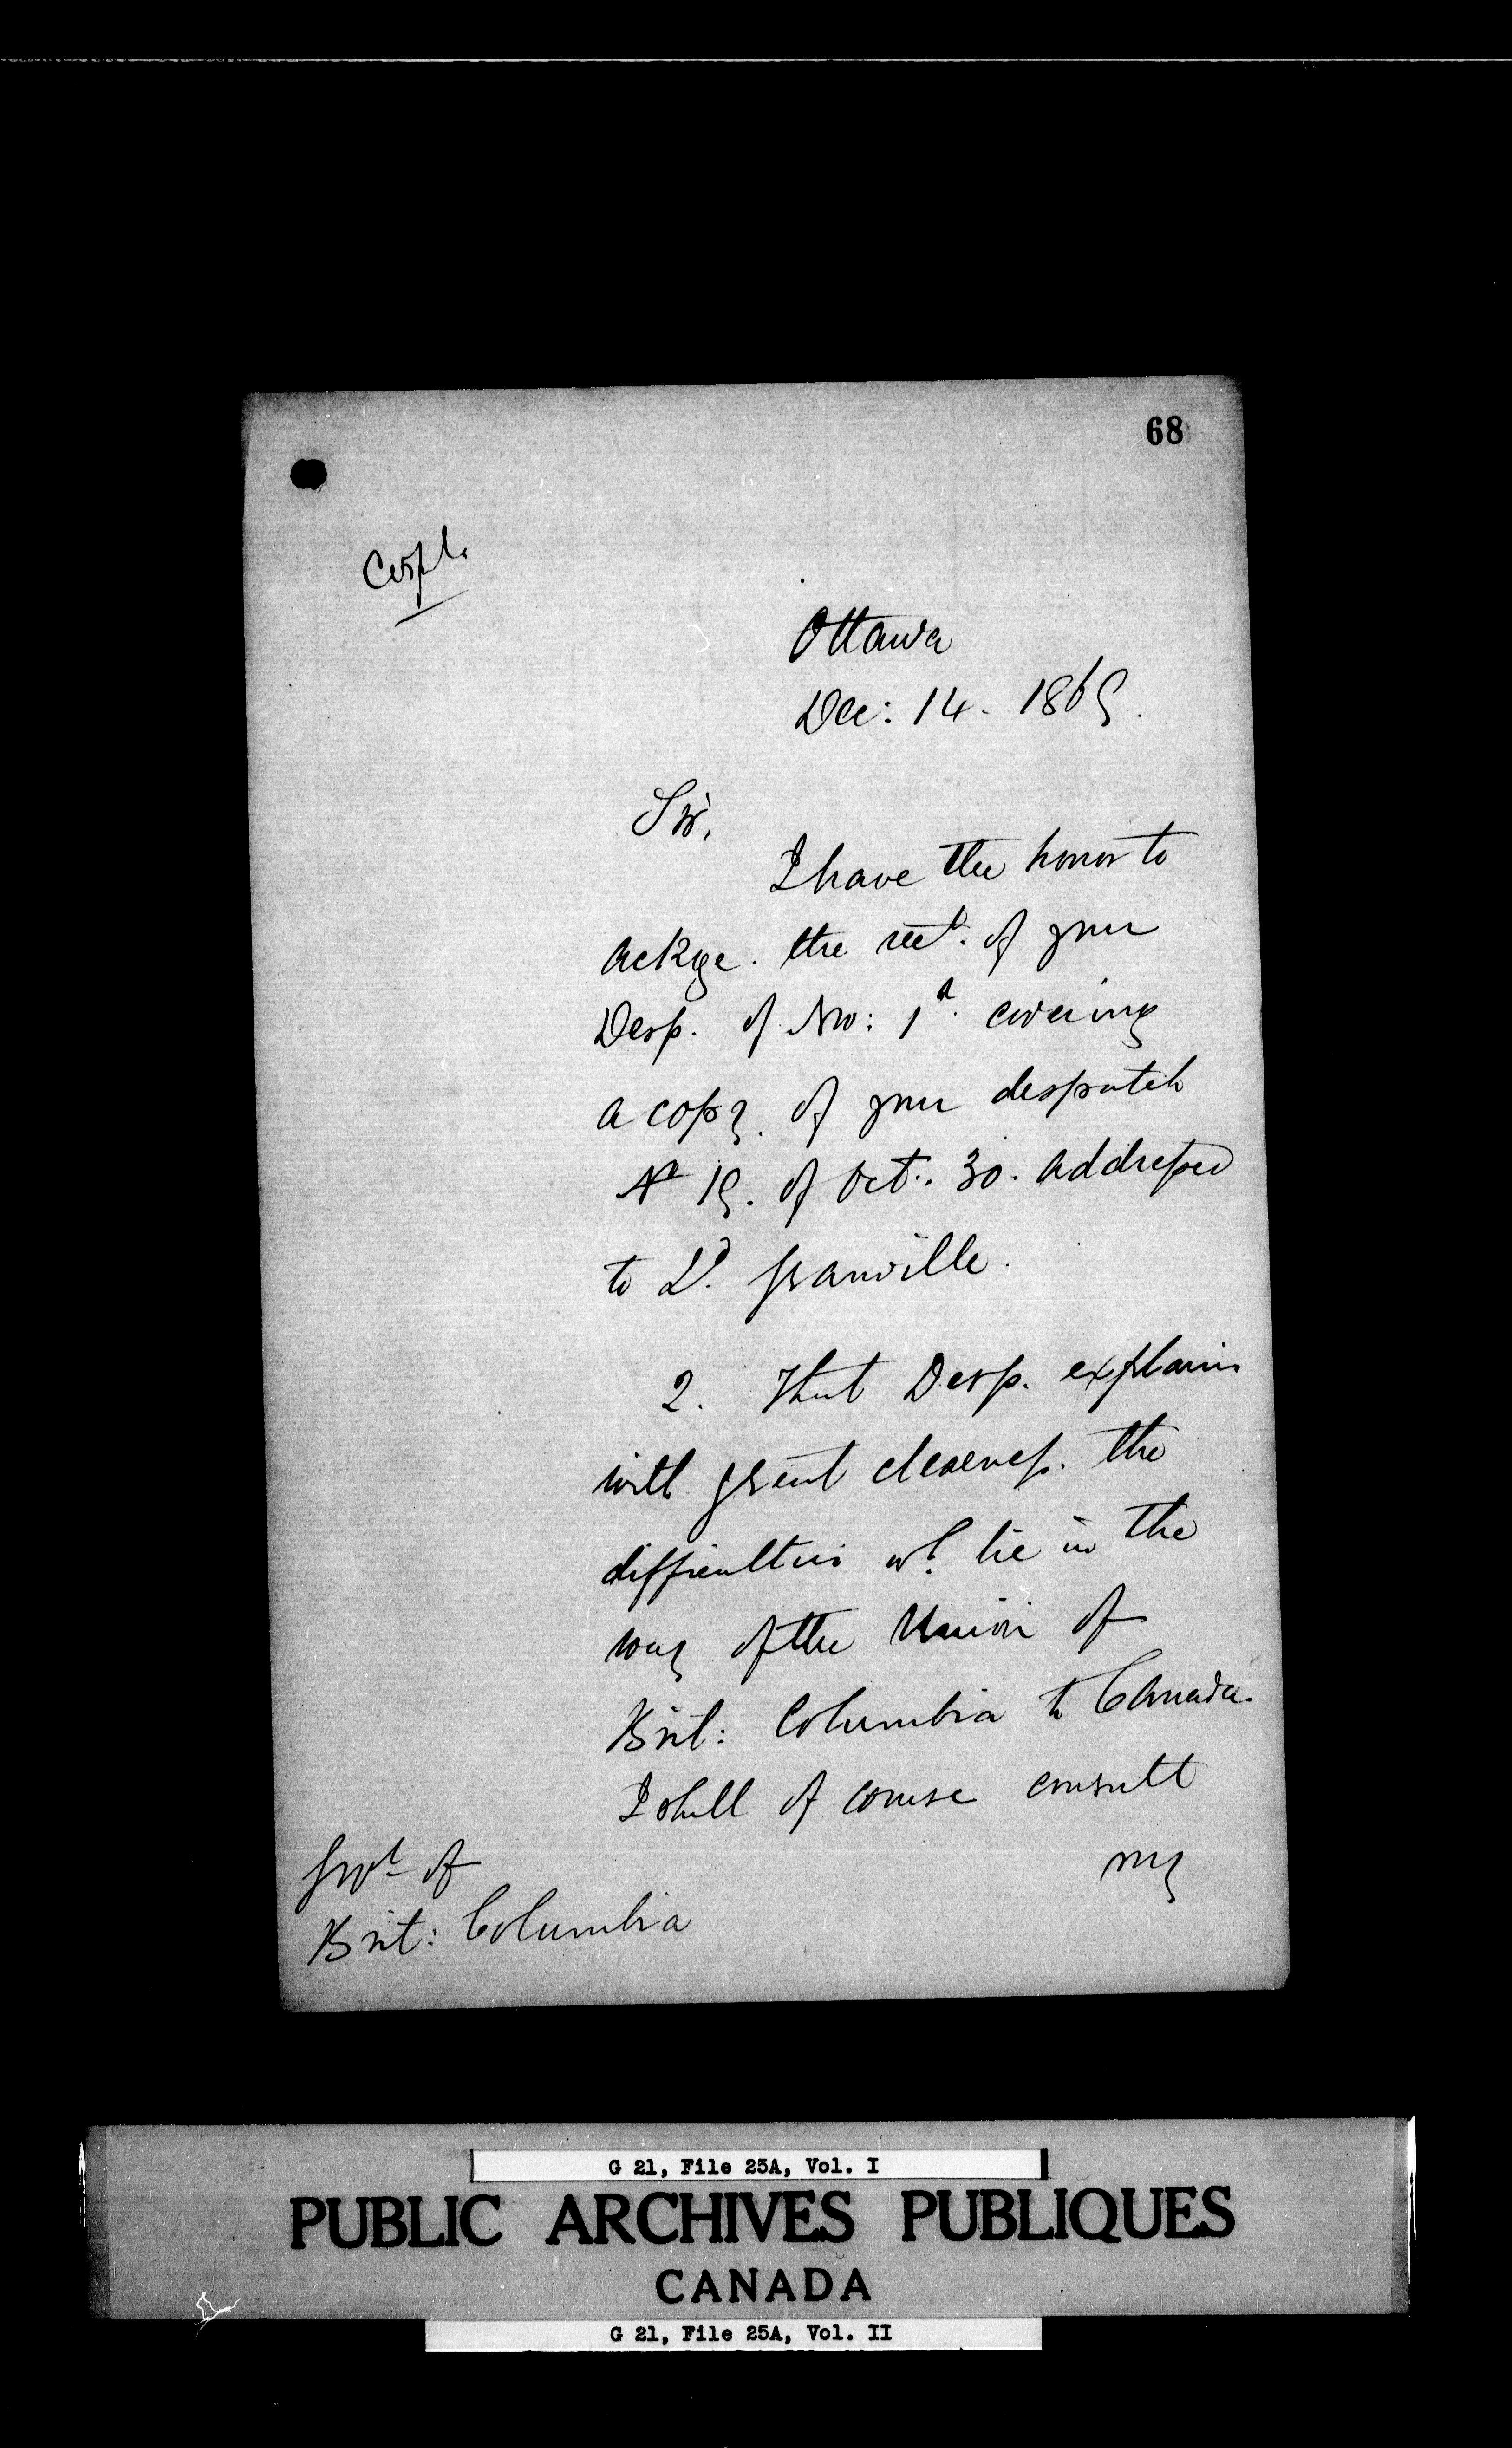 68
Confl.
Ottawa
Dec: 14. 1869.
Sir,
I have the honor to
ackge. the rect. of your
Desp. of Nov: 1st. covering
a copy. of your despatch
No 19. of Oct:. 30. addressed
to Ld. Granville.
2. That Desp. explains
with great clearness. the
difficulties wh. lie in the
way of the Union of
Brit: Columbia to Canada.
I shall of course consult
my
Govr of
Brit: Columbia
G 21, File 25A, Vol. I
PUBLIC ARCHIVES PUBLIQUES
CANADA
G 21, File 25A, Vol. II